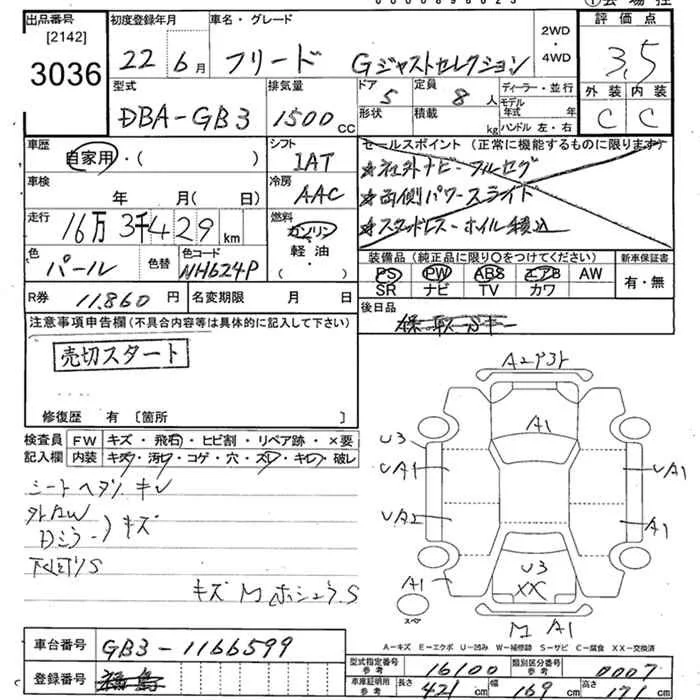 出品番号
[2142]
3036
初度登録年月
22年6月
車名・グレード
フリード Gジャストセレクション
2WD・4WD
評価点
3.5
外装 内装
C C
型式
DBA-GB3
排気量
1500 CC
ドア 5
形状
定員 8 人
積載 kg
ディーラー・並行
モデル年式 年
ハンドル 左・右
車歴
自家用・( )
シフト
IAT
車検
年 月( 日)
冷房
AAC
走行
16万3千429 km
燃料
ガソリン
軽油
色
パール
色替
色コード
NH624P
R券
11,860 円
名変期限 月 日
セールスポイント(正常に機能するものに限ります)
★社外ナビ-フルセグ
★両側パワースライド
★スタッドレス-ホイル積込
装備品(純正品に限り○をつけてください)
PS PW ABS エアB AW
SR ナビ TV カワ
新車保証書
有・無
後日品
注意事項申告欄(不具合内容等は具体的に記入して下さい)
売切スタート
修復歴 有 [箇所 ]
検査員記入欄
FW キズ・飛石・ヒビ割・リペア跡・×要
内装 キズ・汚れ・コゲ・穴・スレ・キレ・破レ
キズ
下回りS
キズ M
A1
U3
UA1
UA2
A1
UA1
A1
U3
XX
M A1
スペア
A-キズ E-エクボ U-凹み W-補修跡 S-サビ C-腐食 XX-交換済
車台番号
GB3-1166599
登録番号
福島
型式指定番号 参考 16100
類別区分番号 参考 0007
車庫証明用 参考
長さ 421 cm 幅 169 cm 高さ 171 cm